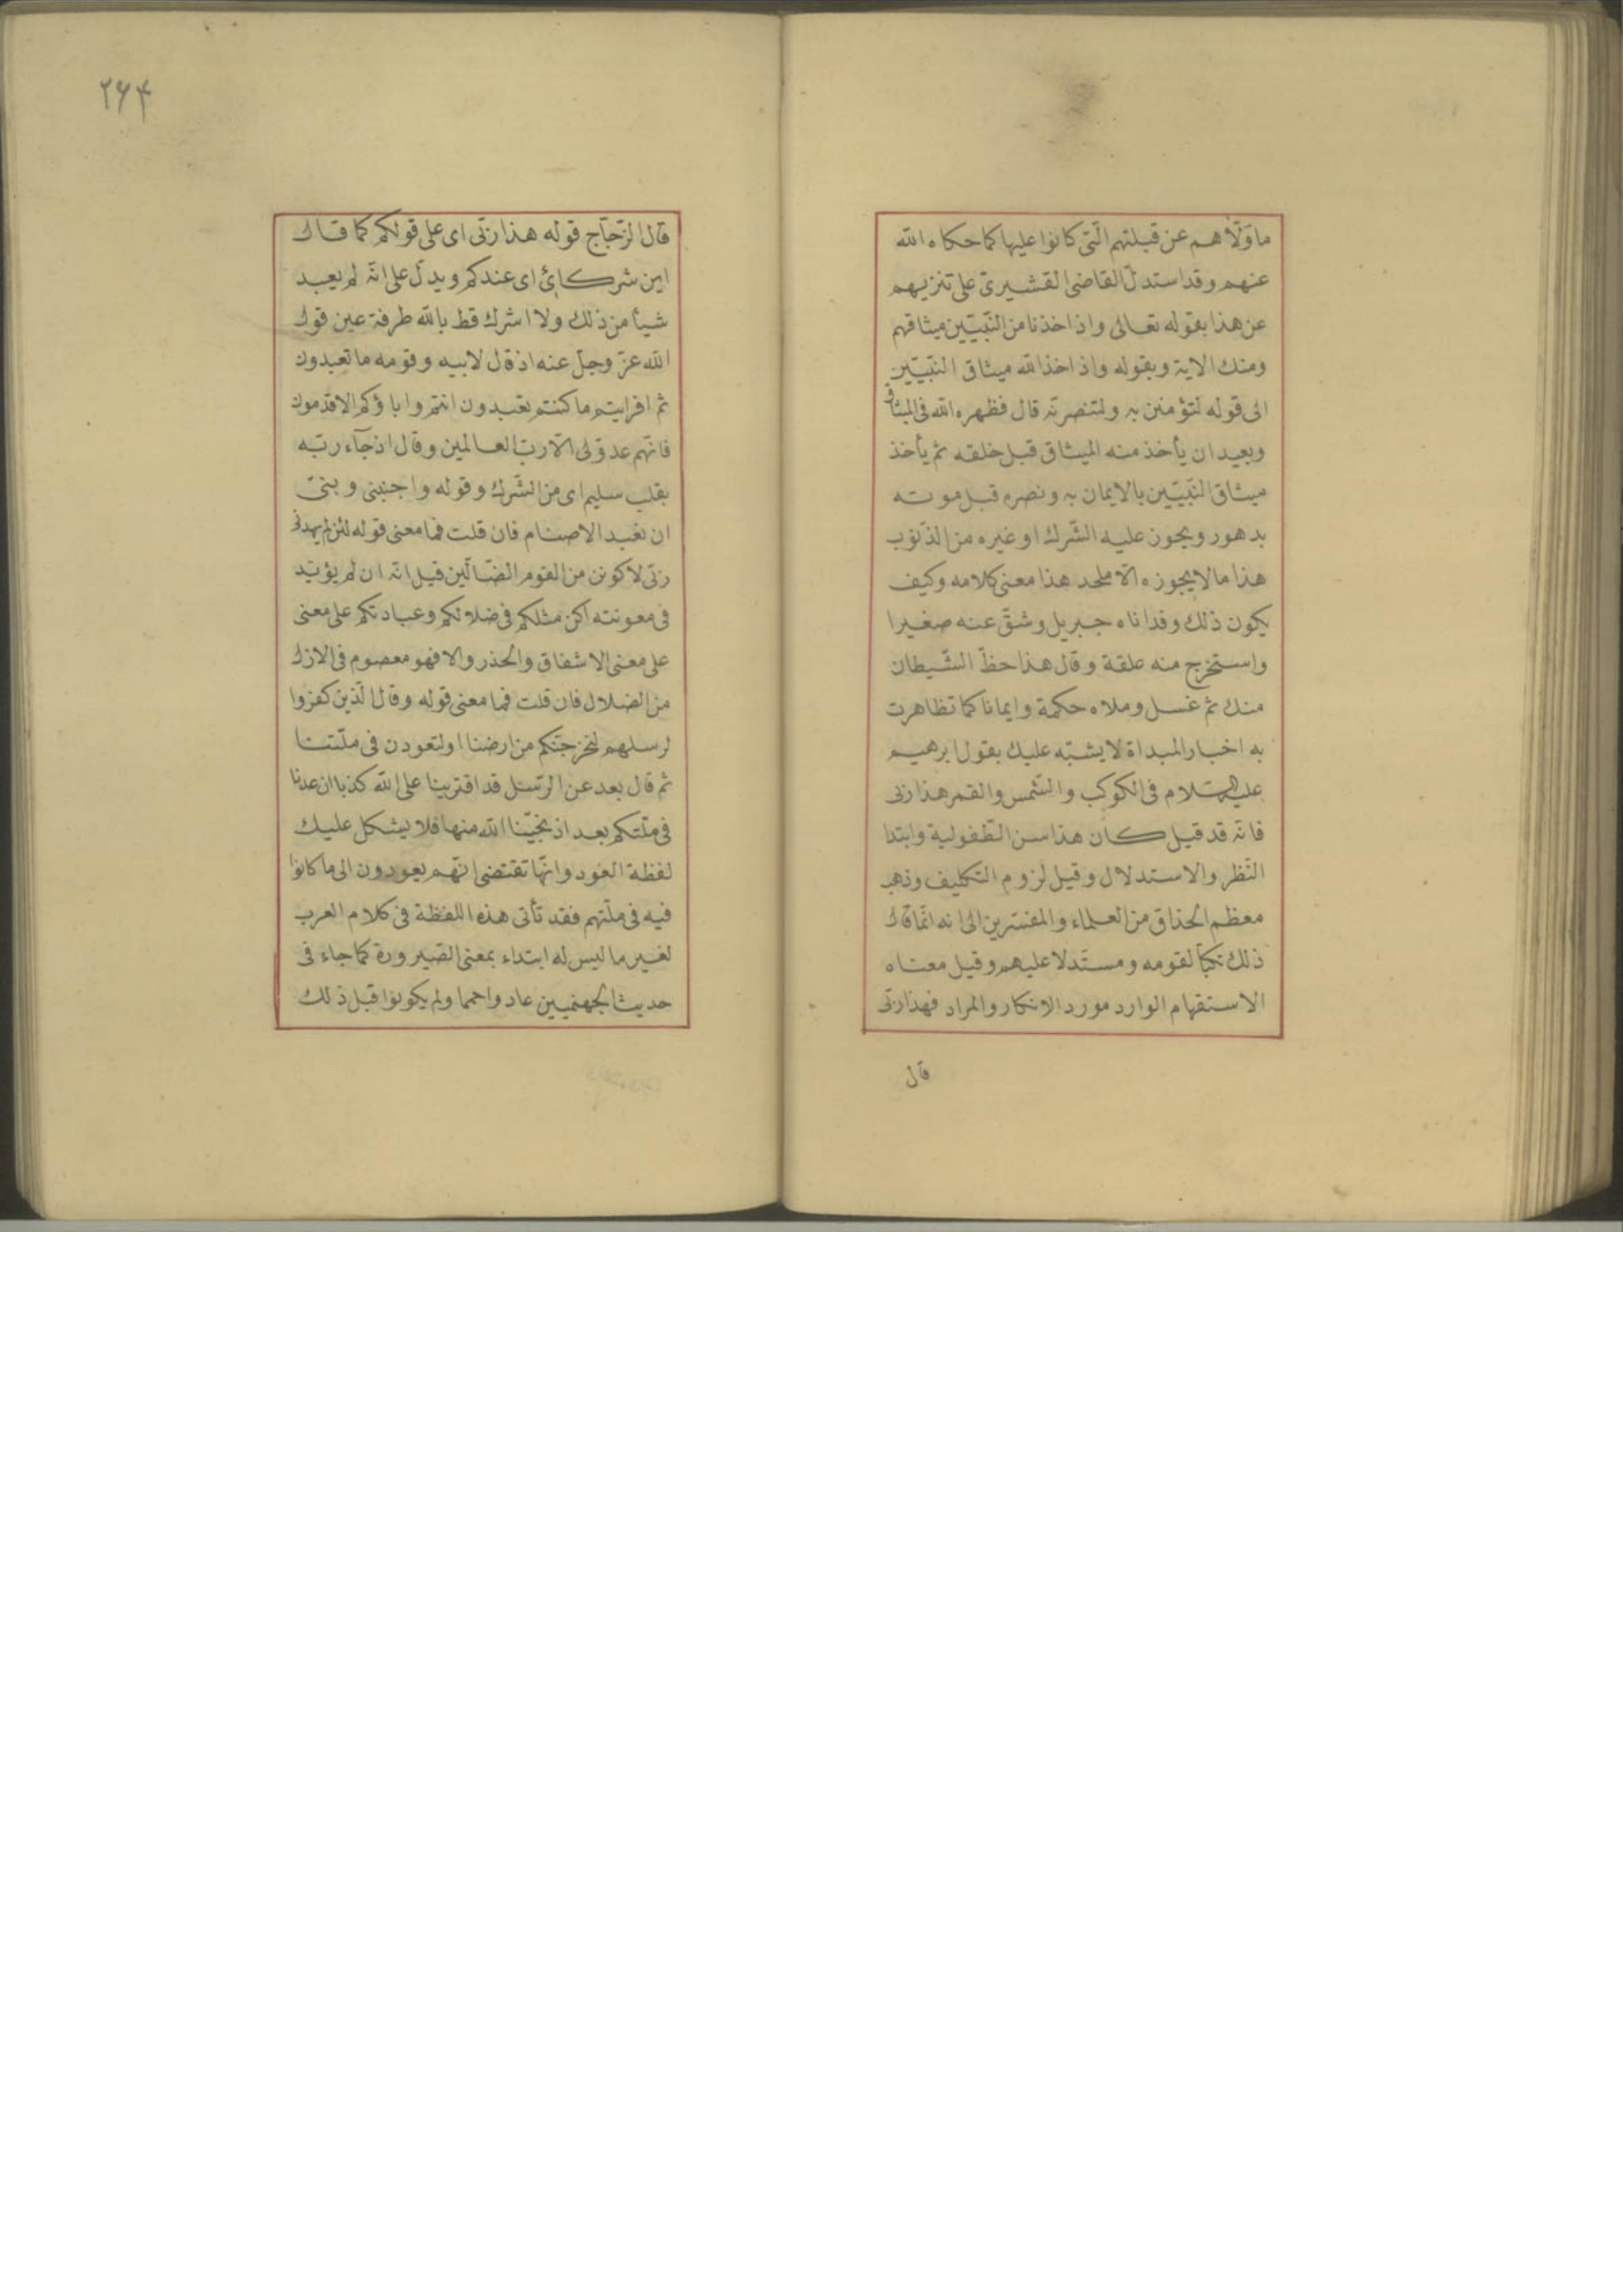 ما ولّاهم عن قبلتهم الّتى كانوا عليها كما حكاه الله
عنهم وقد استدلّ القاضى القشيرىّ على تنزيههم
عن هذا بقوله تعالى واذ اخذنا من النّبيّين ميثاقهم
ومنك الاية وبقوله واذ اخذ الله ميثاق النّبيّين
الى قوله لتؤمنن به ولتنصرنّه قال فطهره الله فى الميثاق
وبعيد ان يأخذ منه الميثاق قبل خلقه ثم يأخذ
ميثاق النّبيّين بالايمان به ونصره قبل موته
بدهور ويجوز عليه الشّرك او غيره من الذّنوب
هذا ما لا يجوزه الّا ملحد هذا معنى كلامه وكيف
يكون ذلك وقد اتاه جبريل وشقّ عنه صغيرا
واستخرج منه علقة وقال هذا حظّ الشّيطان
منك ثم غسل وملاه حكمة وايمانا كما تظاهرت
به اخبار المبداة لا يشبّه عليك بقول ابرهيم
عليه السّلام فى الكوكب والشّمس والقمر هذا ربى
فانّه قد قيل كان هذا سن الطّفولية وابتدا
النّظر والاستدلال وقيل لزوم التكليف وذهب
معظم الحذاق من العلماء والمفسّرين الى انه انّما قال
ذلك تبكيتا لقومه ومستدلا عليهم وقيل معناه
الاستفهام الوارد مورد الانكار والمراد فهذا ربّى
قال
٢٦۴
قال الزّجّاج قوله هذا ربّى اى على قولكم كما قال
اين شركائ اى عندكم ويدلّ على انّه لم يعبد
شيأ من ذلك ولا اشرك قط بالله طرفة عين قول
الله عزّ وجلّ عنه اذ قال لابيه وقومه ما تعبدون
ثم افرايتم ما كنتم تعبدون انتم واباؤكم الاقدمون
فانّهم عدوّ لى الّا ربّ العالمين وقال اذ جآء ربّه
بقلب سليم اى من الشّرك وقوله واجنبنى وبنىّ
ان نعبد الاصنام فان قلت فما معنى قوله لئن لم يهدنى
ربّى لأكونن من القوم الضّالّين قيل انّه ان لم يؤيّد
فى معونته اكن مثلكم فى ضلالكم وعبادتكم على معنى
على معنى الاشفاق والحذر والا فهو معصوم فى الازل
من الضلال فان قلت فما معنى قوله وقال الّذين كفروا
لرسلهم لنخرجنّكم من ارضنا او لتعودن فى ملّتنا
ثم قال بعد عن الرّسل قد افترينا على الله كذبا ان عدنا
فى ملّتكم بعد اذ نجّينا الله منها فلا يشكل عليك
لفظة العود وانّها تقتضى انّهم يعودون الى ما كانوا
فيه فى ملّتهم فقد تأتى هذه اللفظة فى كلام العرب
لغير ما ليس له ابتداء بمعنى الصّيرورة كما جاء فى
حديث الجهنميين عادوا حمما ولم يكونوا قبل ذلك